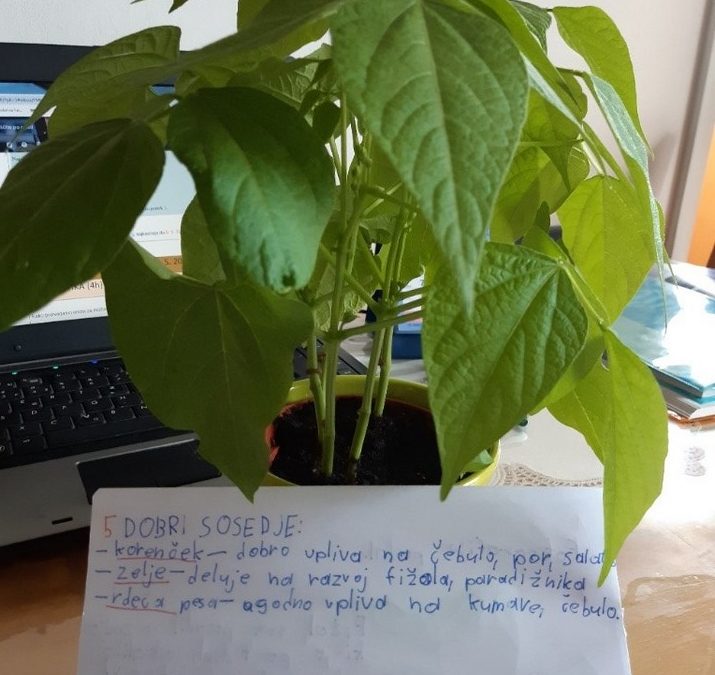 5 DOBRI SOSEDJE:
- korenček - dobro vpliva na čebulo, por, solat
- zelje - deluje na razvoj fižola, paradižnika
- rdeča pesa - agodno vpliva na kumare, čebulo.